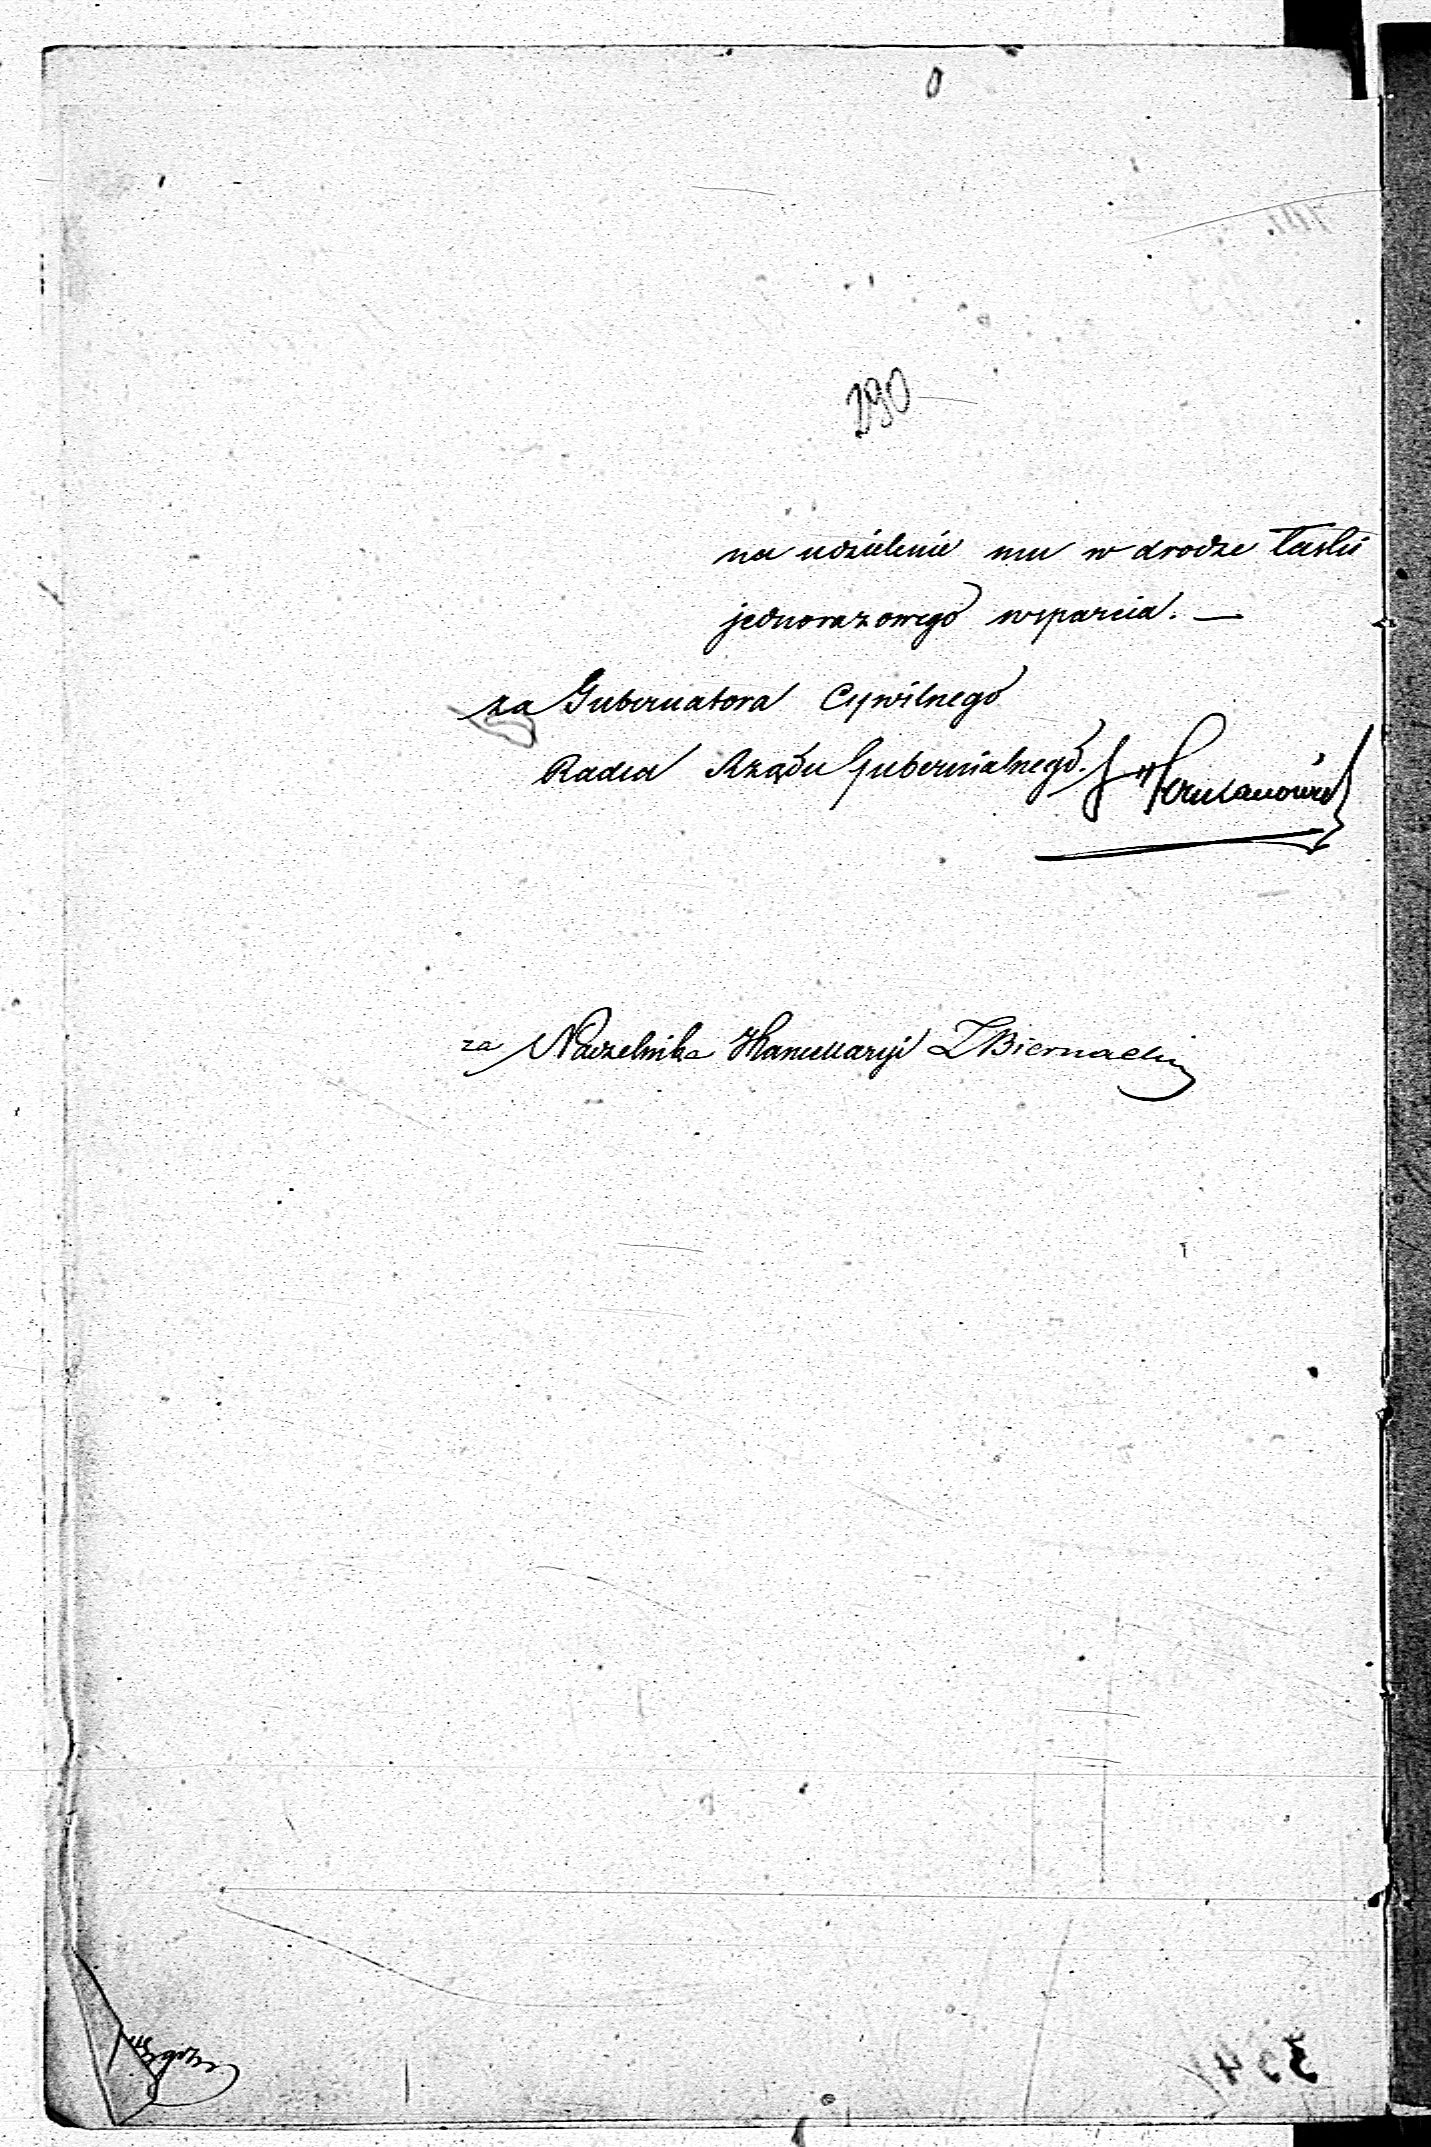 190
na udzielenie mu w drodze łaski
jednorazowego wsparcia. —
za Gubernatora Cywilnego
Radca Rządu Gubernialnego.
za Naczelnika Kancellaryi Z Biernacki